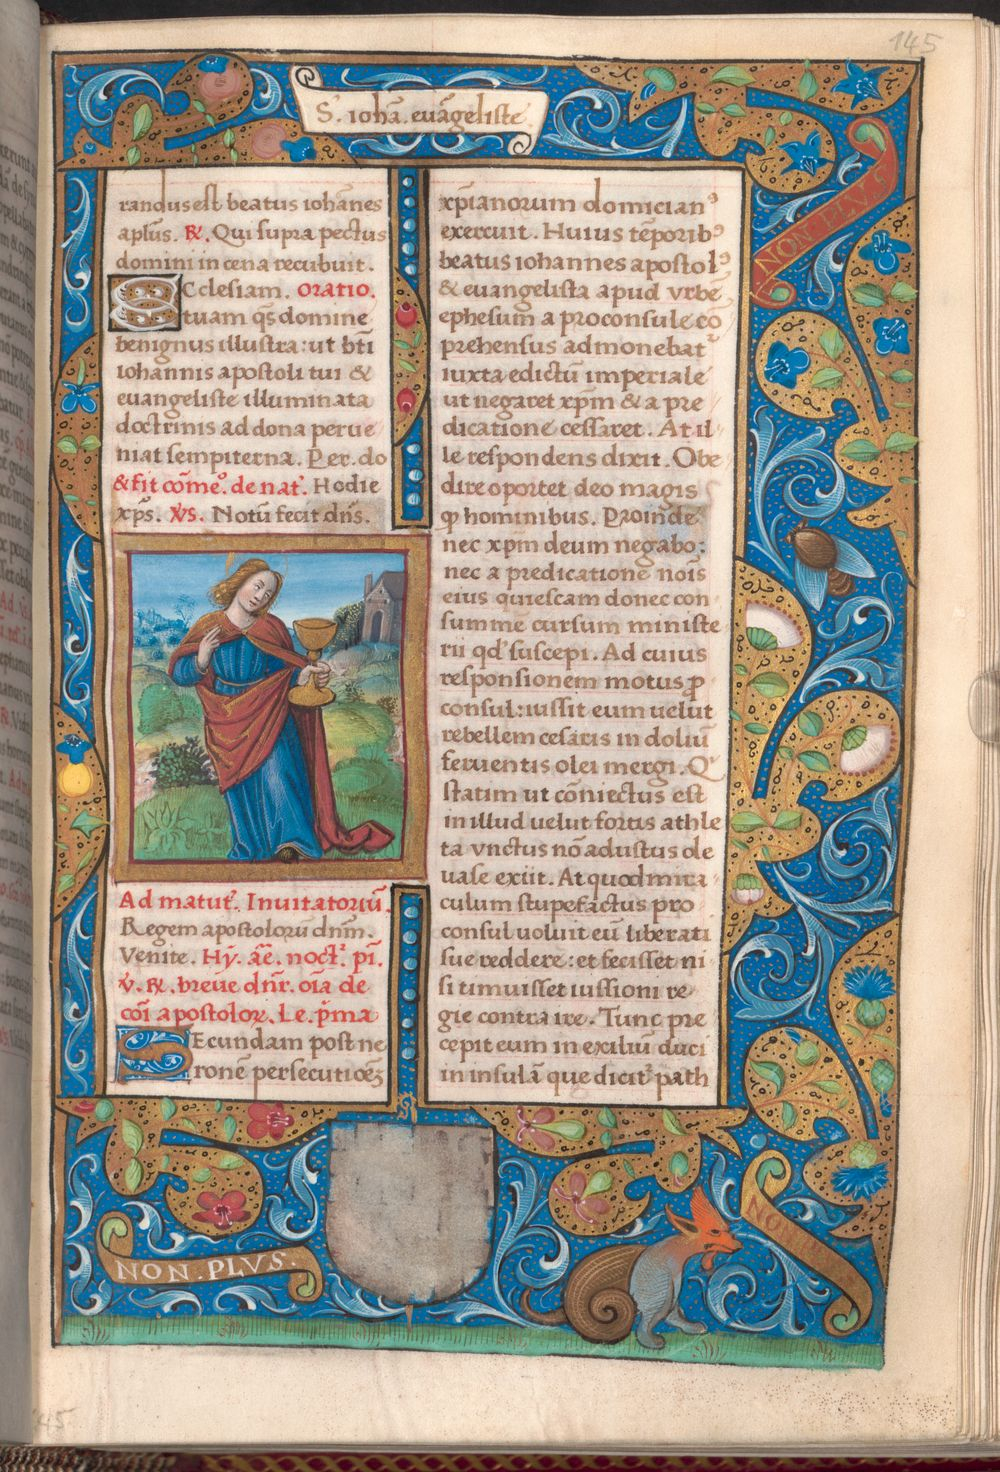 145
S. iohā. euāgeliste
NON. PLVS
randus est beatus iohānes
aplūs. ℟. Qui supra pectus
domini in cena recubuit.
Ecclesiam. Oratio.
tuam qs̄ domine
benignus illustra: ut bt̄i
iohannis apostoli tui &
euangeliste illuminata
doctrinis ad dona perue
niat sempiterna. Per. do
& fit cōme. de nat. Hodie
xp̄s. ℣s. Notū fecit dn̄s.
Ad matut. Inuitatoriū
Regem apostolorū dn̄m.
Venite. Hȳ. āe. noct. pī.
℣. ℟. breue dn̄r. oīa de
cōi apostolor. Le. p̄ma
Secundam post ne
ronē persecutiōeꝫ
xp̄ianorum domicianꝰ
exercuit. Huius tēporibꝰ
beatus iohannes apostolꝰ
& euangelista apud vrbe
ephesum a proconsule cō
prehensus admonebat
iuxta edictū imperiale
ut negaret xp̄m & a pre
dicatione cessaret. At il
le respondens dixit. Obe
dire oportet deo magis
ꝙ hominibus. Proinde
nec xp̄m deum negabo:
nec a predicatione nōis
eius quiescam donec con
summe cursum ministe
rii qd̄ suscepi. Ad cuius
responsionem motus ꝓ
consul: iussit eum uelut
rebellem cesaris in doliū
feruentis olei mergi. Q
statim ut cōniectus est
in illud uelut fortis athle
ta vnctus nō adustus de
uase exiit. At quod mira
culum stupefactus pro
consul uoluit eū liberati
sue reddere: et fecisset ni
si timuisset iussioni re
gie contra ire. Tunc pre
cepit eum in exiliū duci
in insulā que dicit path
NON. PLVS.
NON
45